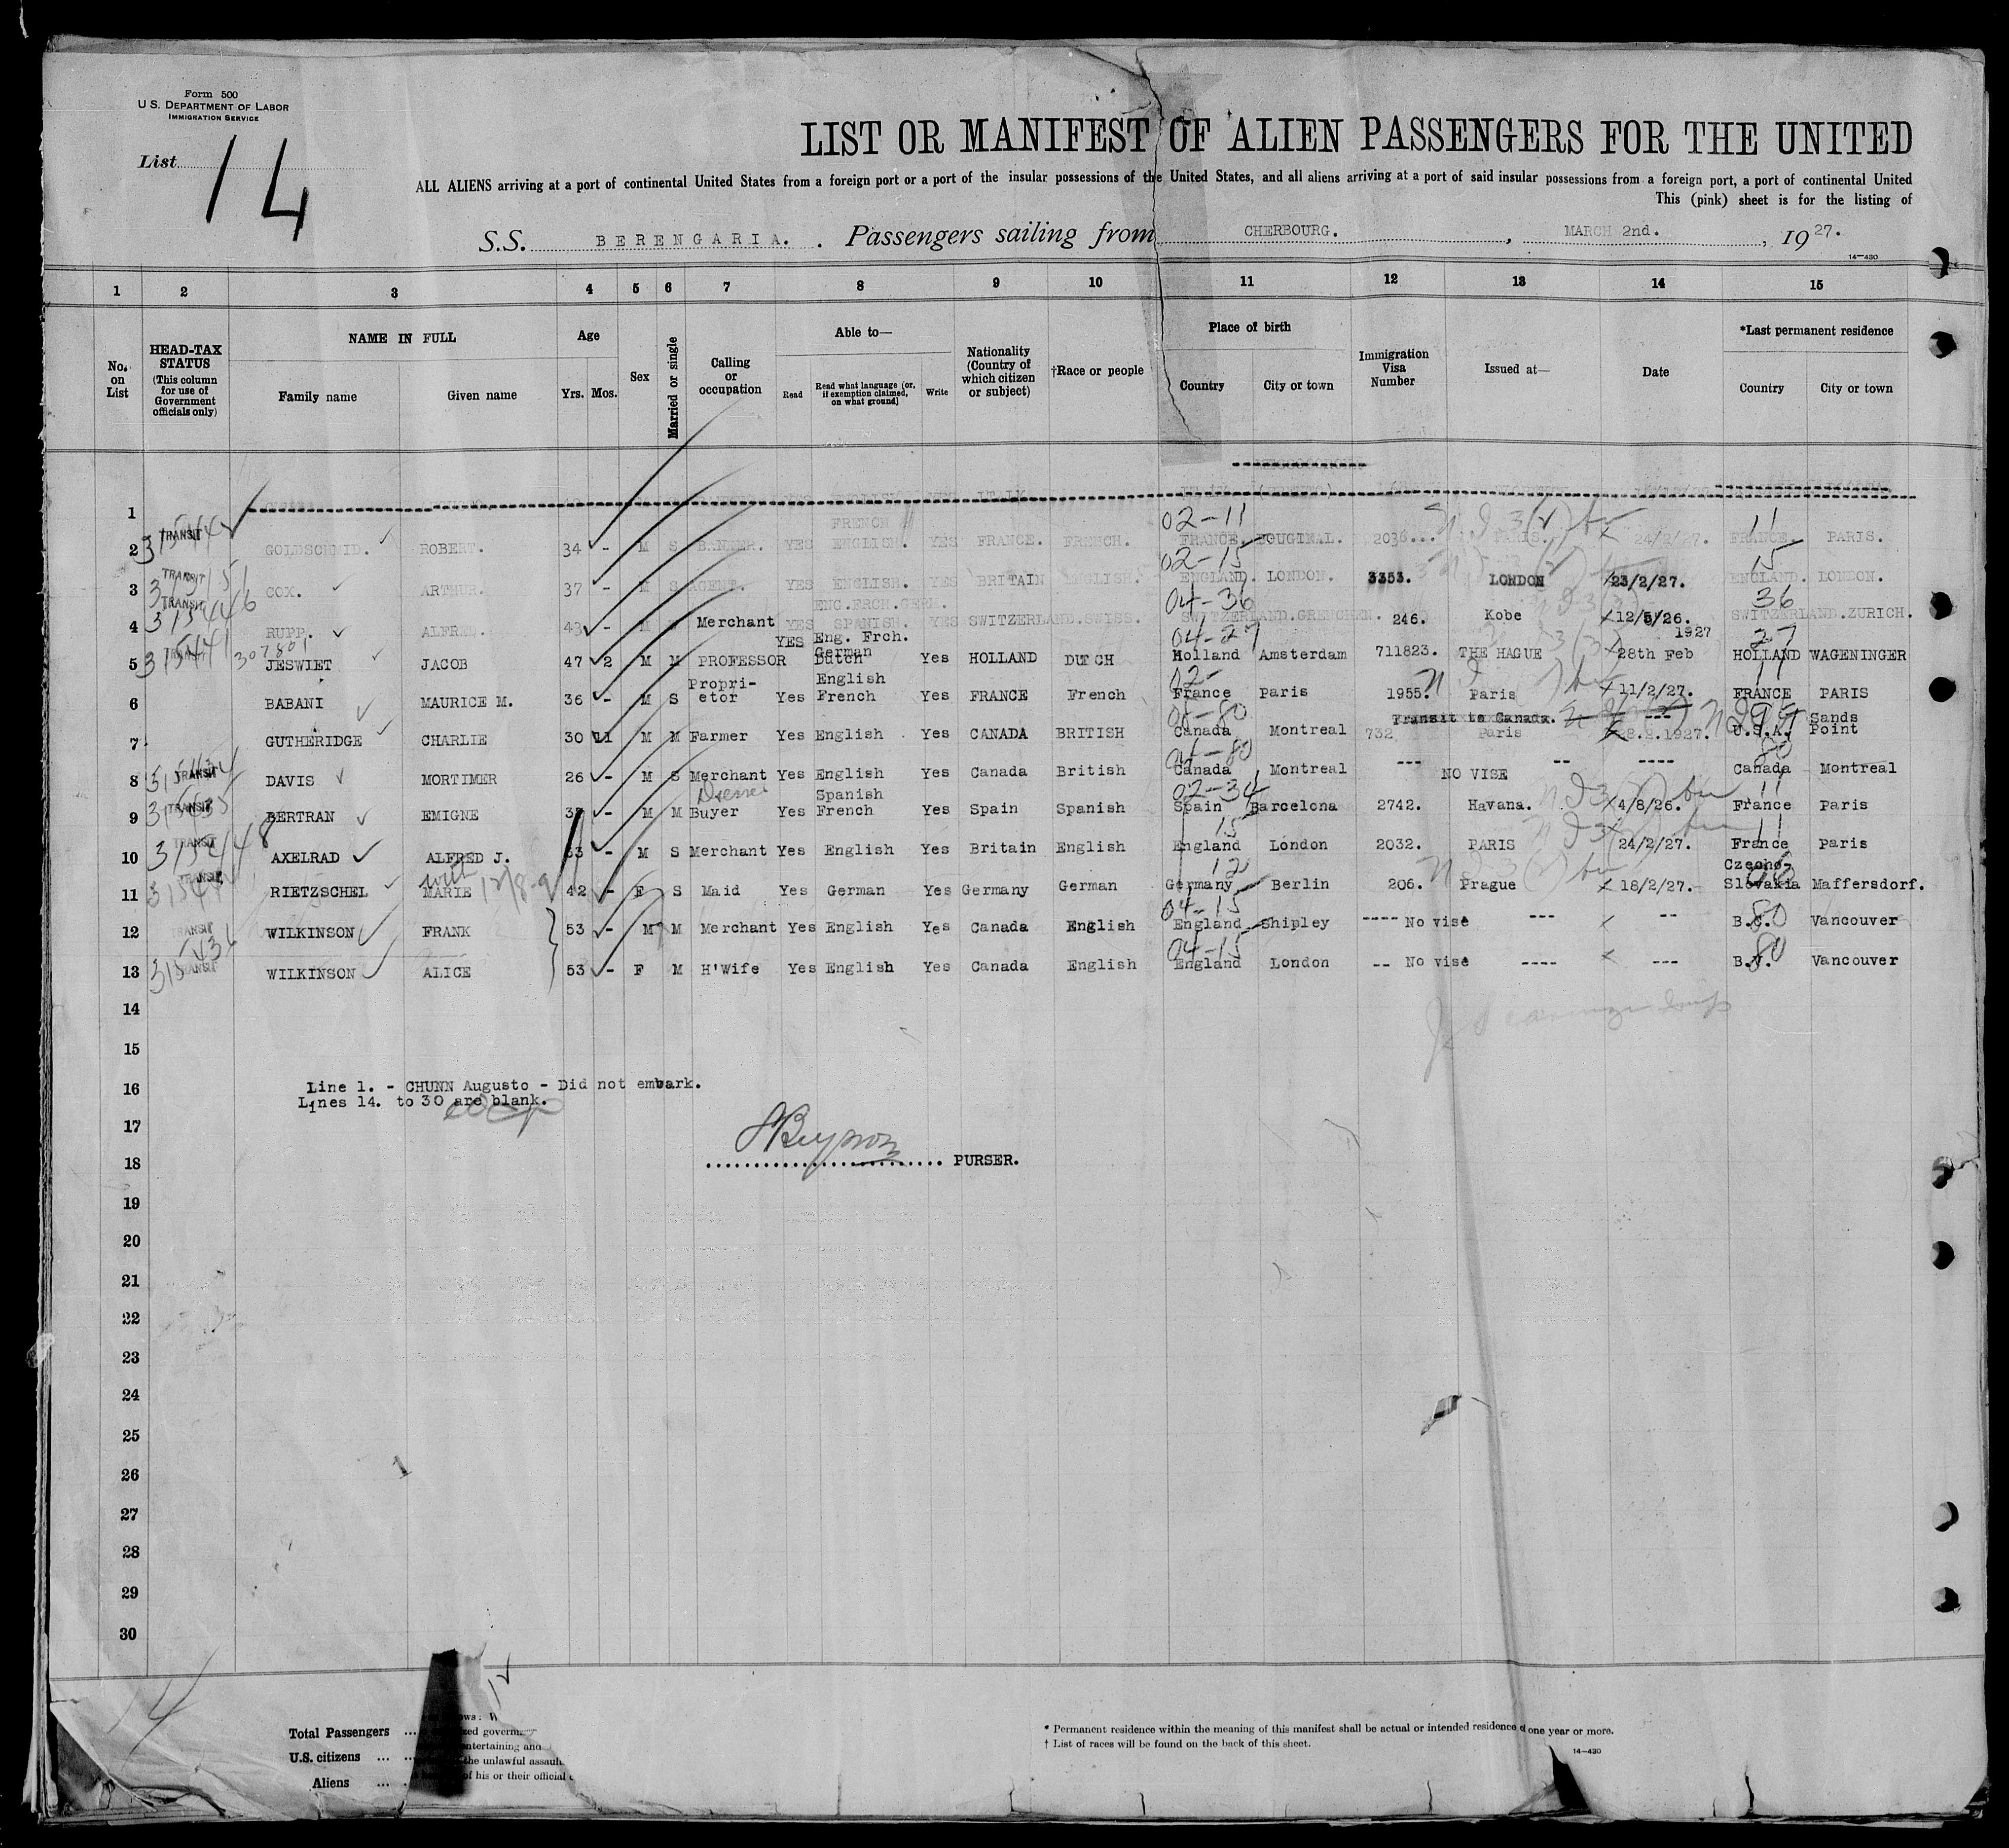 Form 500
U S. DEPARTMENT OF LABOR
IMMIGRATION SERVICE
List 14
LIST OR MANIFEST OF ALIEN PASSENGERS FOR THE UNITED
ALL ALIENS arriving at a port of continental United States from a foreign port or a port of the insular possessions of the United States, and all aliens arriving at a port of said insular possessions from a foreign port, a port of continental United
This (pink) sheet is for the listing of
S.S. BERENGARIA. Passengers sailing from CHERBOURG. , MARCH 2nd. , 19 27.
14—430
1 2 3 4 5 6 7 8 9 10 11 12 13 14 15
No. on List
HEAD-TAX STATUS (This column for use of Government officials only)
NAME IN FULL Family name Given name
Age Yrs. Mos.
Sex
Married or single
Calling or occupation
Able to— Read Read what language (or, if exemption claimed, on what ground) Write
Nationality (Country of which citizen or subject)
†Race or people
Place of birth Country City or town
Immigration Visa Number
Issued at—
Date
*Last permanent residence Country City or town
1
02-11 11
2 TRANSIT GOLDSCHMID. ROBERT. 34 - M S BANKER. YES FRENCH ENGLISH. YES FRANCE. FRENCH. FRANCE. 2036... PARIS. 24/2/27. FRANCE. PARIS.
02-15 15
3 TRANSIT COX. ARTHUR. 37 - M S AGENT. YES ENGLISH. YES BRITAIN ENGLISH. ENGLAND. LONDON. 3353. LONDON 23/2/27. ENGLAND. LONDON.
04-36 36
4 TRANSIT 315446 RUPP. ALFRED. 43 - M Merchant YES ENG.FRCH.GERM. SPANISH. YES SWITZERLAND.SWISS. SWITZERLAND.GRENCHEN. 246. Kobe 12/5/26. SWITZERLAND.ZURICH.
04-27 27
5 315441 307801 JESWIET JACOB 47 2 M M PROFESSOR YES Eng. Frch. German Dutch Yes HOLLAND DUTCH Holland Amsterdam 711823. THE HAGUE 28th Feb 1927 HOLLAND WAGENINGER
02- 11
6 BABANI MAURICE M. 36 - M S Propri-etor Yes English French Yes FRANCE French France Paris 1955. Paris 11/2/27. FRANCE PARIS
Transit to Canada. ---
7 GUTHERIDGE CHARLIE 30 11 M M Farmer Yes English Yes CANADA BRITISH Canada Montreal 732 Paris 28.2.1927. U.S.A. Sands Point
04-80 80
8 TRANSIT DAVIS MORTIMER 26 - M S Merchant Yes English Yes Canada British Canada Montreal --- NO VISE -- ---- Canada Montreal
02-34 11
9 TRANSIT BERTRAN EMIGNE - M M Buyer Yes Spanish French Yes Spain Spanish Spain Barcelona 2742. Havana. 4/8/26. France Paris
15 11
10 TRANSIT 315448 AXELRAD ALFRED J. - M S Merchant Yes English Yes Britain English England London 2032. PARIS 24/2/27. France Paris
12
11 TRANSIT RIETZSCHEL MARIE 42 - F S Maid Yes German Yes Germany German Germany Berlin 206. Prague 18/2/27. Czecho-Slovakia Maffersdorf.
04-15 80
12 TRANSIT WILKINSON FRANK 53 - M M Merchant Yes English Yes Canada English England Shipley ---- No vise --- -- B.C. Vancouver
04-15 80
13 TRANSIT WILKINSON ALICE 53 - F M H'Wife Yes English Yes Canada English England London -- No vise ---- --- Vancouver
14
15
16
Line 1. - CHUNN Augusto - Did not embark.
Lines 14. to 30 are blank.
17
18
.......................... PURSER.
19
20
21
22
23
24
25
26
27
28
29
30
14
Total Passengers ...
U.S. citizens ... ...
Aliens ... .
entertaining and
the unlawful
of his or their official
* Permanent residence within the meaning of this manifest shall be actual or intended residence of one year or more.
† List of races will be found on the back of this sheet.
14—430